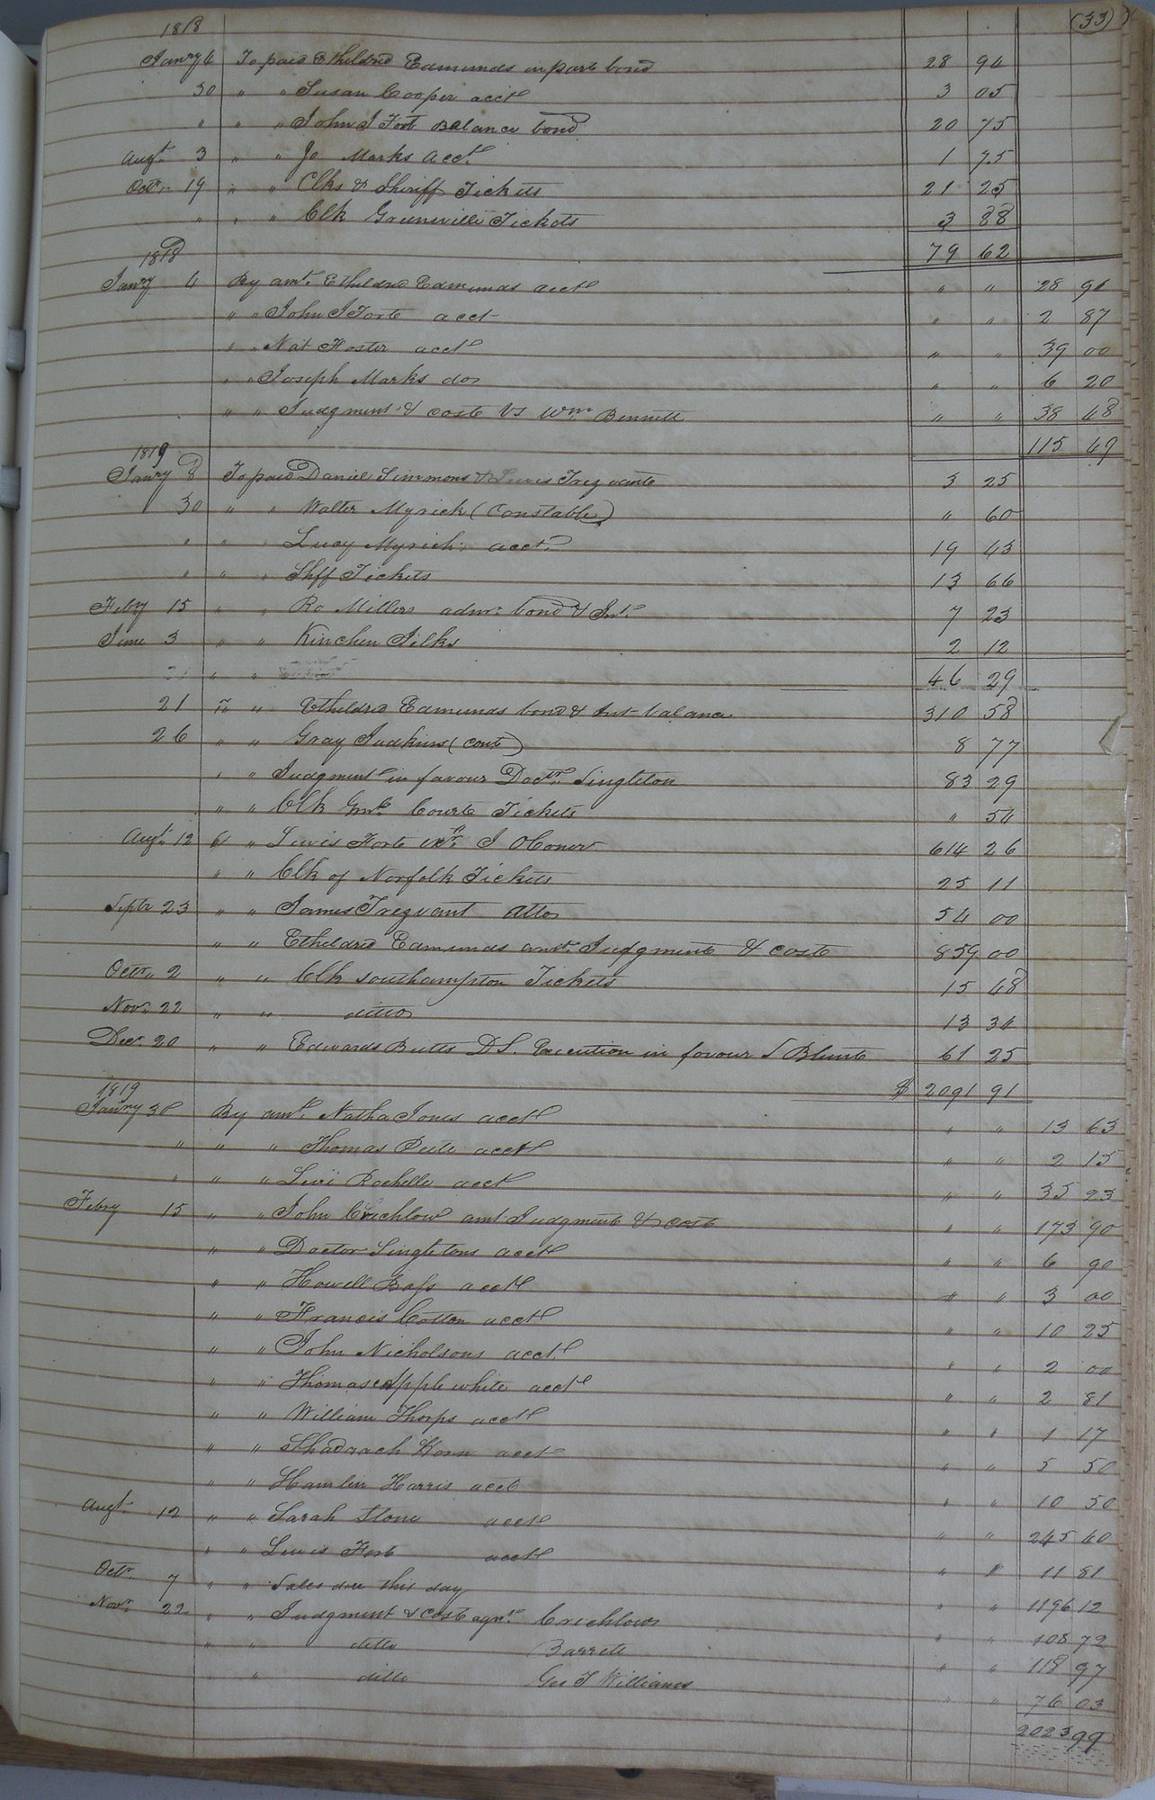 (33)
1818
Janry 6 To paid Etheldred Edmunds in part bond 28 94
30 " " Susan Cooper acct 3 05
" " " John J Fort Balance bond 20 75
Augt. 3 " " Jo Marks acct. 1 75
Octr. 19 " " Clks & Sheriff Tickets 21 25
" " " Clk Greensville Tickets 3 88
79 62
1818
Janry 6 By amt. Etheldred Edmunds acct " " 28 94
" " John J Fort acct " " 2 87
" " Nat Foster acct " " 39 00
" " Joseph Marks do " " 6 20
" " Judgment & costs vs Wm. Bennett " " 38 68
115 69
1819
Janry 8 To paid Daniel Simmons & Lewis Trezvant 3 25
30 " " Walter Myrick (Constable) " 60
" " " Lucy Myrick acct. 19 43
" " " Shff Tickets 13 66
Febry 15 " " Ro Millers admr. bond & Int. 7 23
June 3 " " Kinchen Jelks 2 12
46 29
21 To " Etheldred Edmunds bond & Int balance 310 58
26 " " Gray Judkins (Cont) 8 77
" " Judgment in favour Doctr. Singleton 83 29
" " Clk Court Tickets " 54
Augt. 12 " Lewis Fort J OConor 614 26
" " Clk of Norfolk Tickets 25 11
Septr 23 " " James Trezvant Atto 54 00
" " Etheldred Edmunds amt. Judgment & costs 859 00
Octr. 2 " " Clk Southampton Tickets 15 48
Novr. 22 " " ditto 13 34
Decr. 20 " " Edwards Butts D S. Execution in favour S Blunt 61 25
$ 2091 91
1819
Janry 30 By amt. Natha Jones acct " " 13 63
" " " Thomas Pete acct " " 2 15
" " " Levi Rochelle acct " " 35 23
Febry 15 " " John Crichlow amt Judgment & costs " " 173 90
" " Doctor Singletons acct " " 6 90
" " Howell Bass acct " " 3 00
" " Francis Cotton acct " " 10 25
" " John Nicholsons acct. " " 2 00
" " Thomas Applewhite acct " " 2 81
" " William Thorps acct " " 1 17
" " Shadrach Korn acct " " 5 50
" " Hamlin Harris acct " " 10 50
Augt. 12 " " Sarah Stone acct " " 245 60
" " Lewis Fort acct " " 11 81
Octr. 7 " " Sales due this day " " 1196 12
Novr. 22 " " Judgment & cost agnst Crichlow " " 108 72
" " ditto Barrett " " 118 97
" ditto Geo T Williams " " 76 03
2023 99